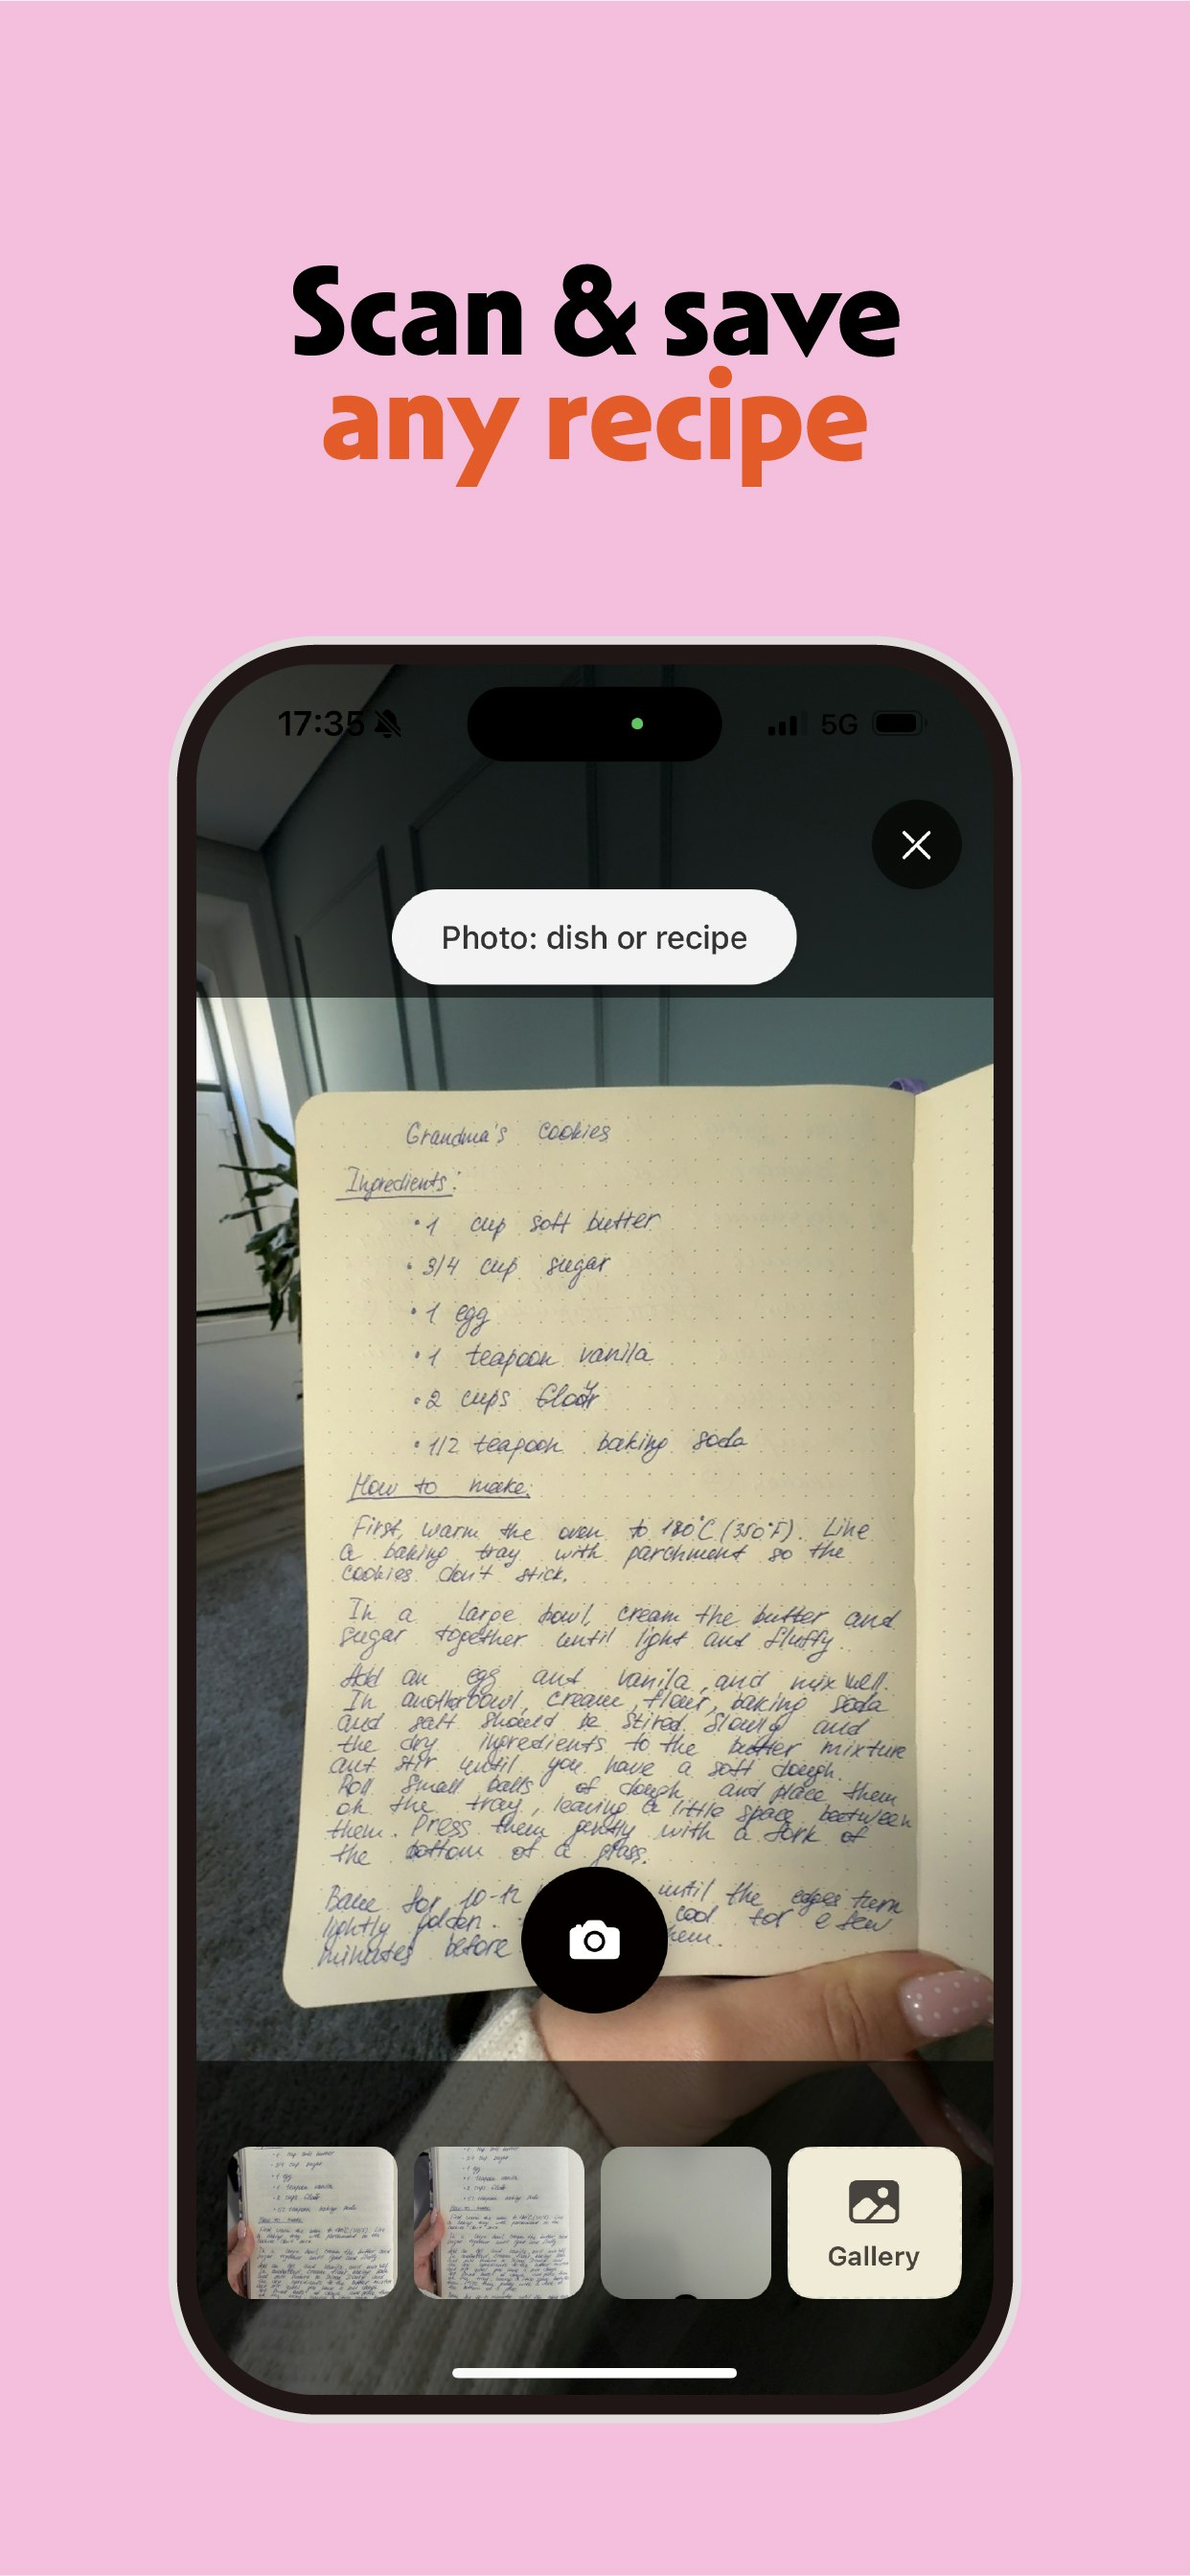 Scan & save
any recipe
17:35
5G
Photo: dish or recipe
Grandma's cookies
Ingredients:
• 1 cup soft butter
• 3/4 cup sugar
• 1 egg
• 1 teapoon vanila
• 2 cups
• 1/2 teapoon baking soda
How to make:
First, warm the oven to 180°C (350°F). Line
a baking tray with parchment so the
cookies don't stick.
In a large bowl, cream the butter and
sugar together until light and fluffy.
Add an egg and vanila, and mix well.
In another bowl, cream, flour, baking soda
and salt should be stired. Slowly and
the dry ingredients to the butter mixture
ant stir until you have a soft dough.
Roll small balls of dough and place them
on the tray, leaving a little space beetween
them. Press them gently with a fork of
the bottom of a glass.
Bake for 10-12 until the edges turn
lightly golden. cool for a few
minutes before
Gallery